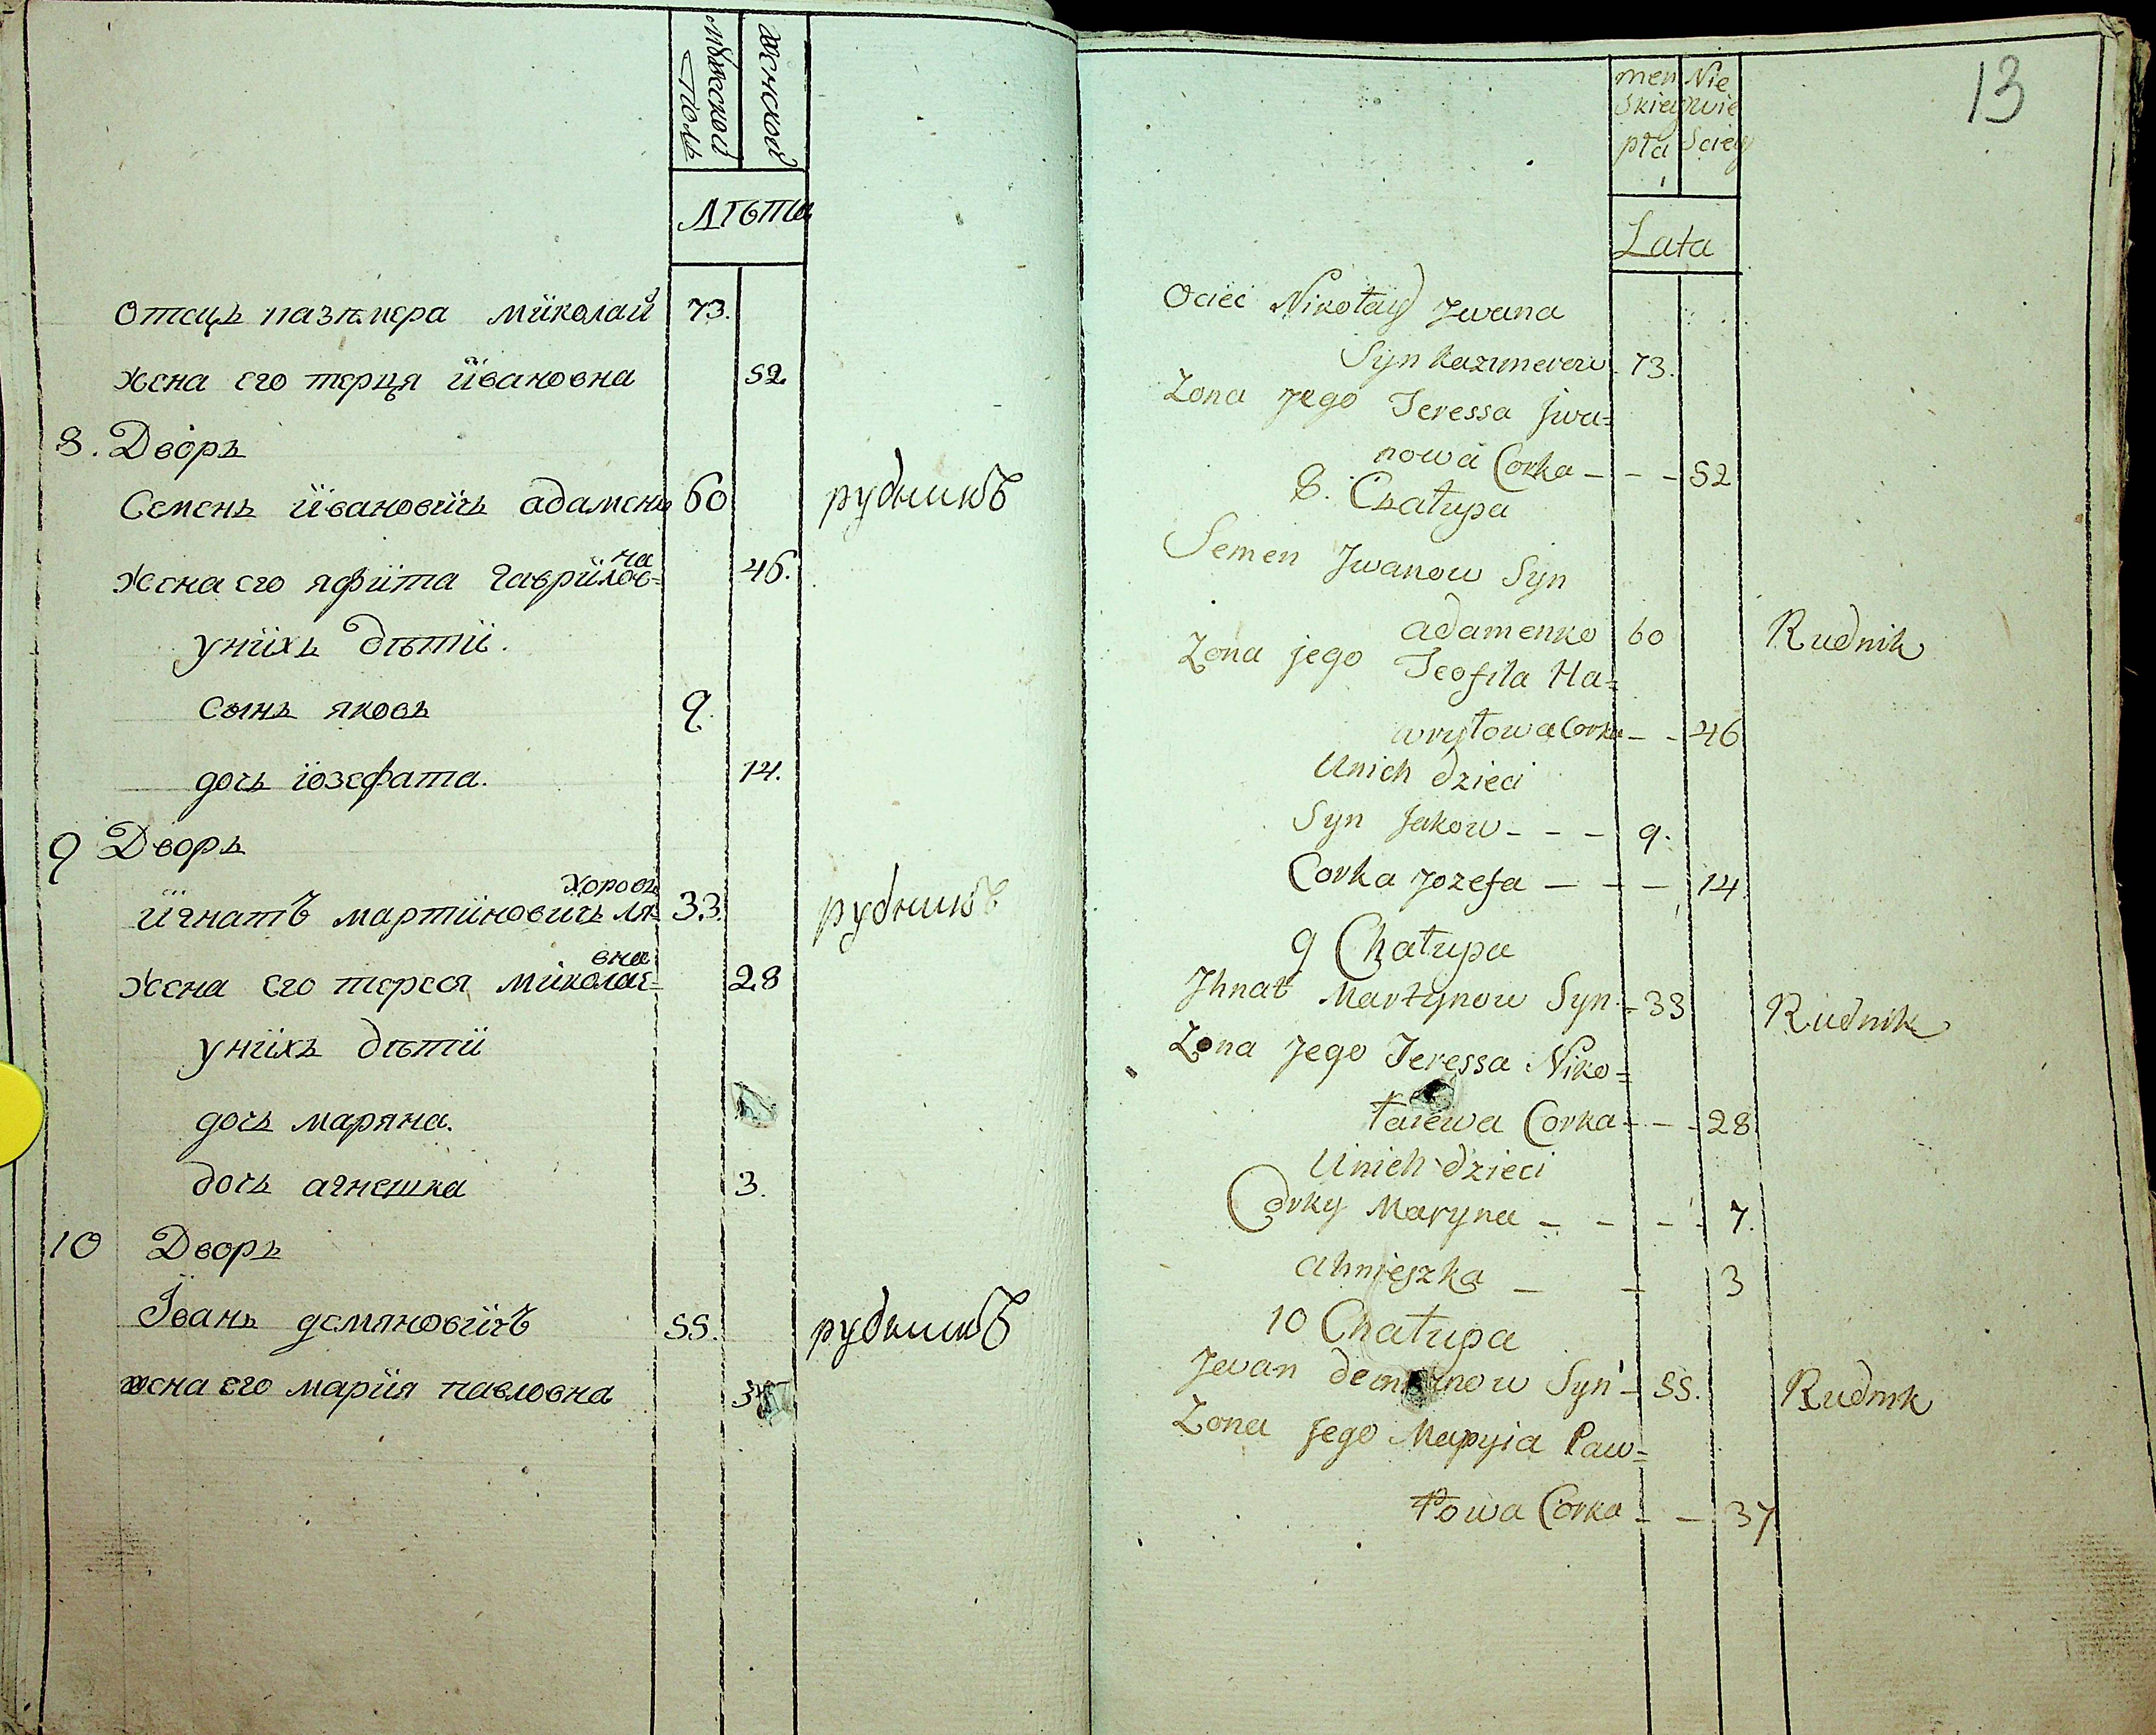 мужеской
поль
женской
лѣта
отець казимера миколай 73.
жена его терця ивановна 52
8. Дворь
Семень ивановичь адамень 60 рудникъ
на
жена его яфита гаврилов= 46.
унихь дѣти.
сынь яковь 9.
дочь иозефата. 14.
9 Дворь
хоровь
игнатъ мартиновичь ля= 33. рудникъ
вна
жена его тереся миколає= 28
унихь дѣти
дочь маряна.
дочь агнешка 3.
10 Дворь
Івань демяновичъ 55. рудникъ
жена его мария павловна
13
men Nie
skiey wie
płci sciey
Lata
Ociec Nikołay Jwana
Syn kazimerow 73.
Zona jego Teressa Jwa=
nowa Corka - - - 52
8. Chałupa
Semen Jwanow Syn
adamenko 60 Rudnik
Zona jego Teofila Ha=
wryłowa Corka - - 46
Unich dzieci
Syn Jakow - - - 9.
Corka Jozefa - - - 14
9 Chałupa
Jhnat Martynow Syn - 33 Rudnik
Zona jego Teressa Niko=
łaiewa Corka - - - 28
Unich dzieci
Corky Maryna - - - - 7.
ahnieszka - - 3
10 Chałupa
Jwan demianow Syn - 55. Rudnik
Zona jego Mapyia Paw=
łowa Corka - - 37